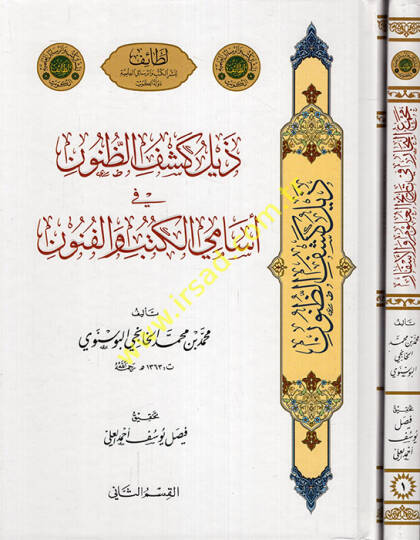 لطائف
لنشر الكتب والرسائل العلمية
دولة الكويت
ذيل كشف الظنون
في
أسامي الكتب والفنون
تأليف
محمد بن محمد الخانجي البوسنوي
ت: ١٣٦٣ هـ رحمه الله
تحقيق
فيصل يوسف أحمد العلي
القسم الثاني
ذيل كشف الظنون
www.irsad.com.tr
تأليف
محمد بن محمد
الخانجي
البوسنوي
تحقيق
فيصل
يوسف
أحمد العلي
١